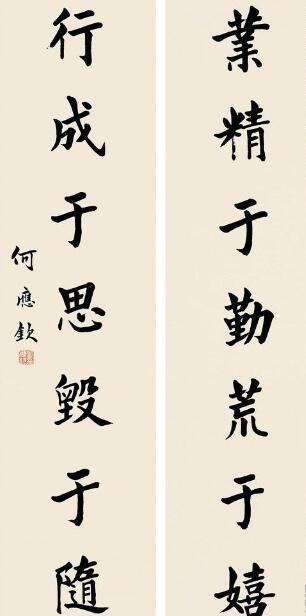 業精于勤荒于嬉
行成于思毀于隨
何應欽